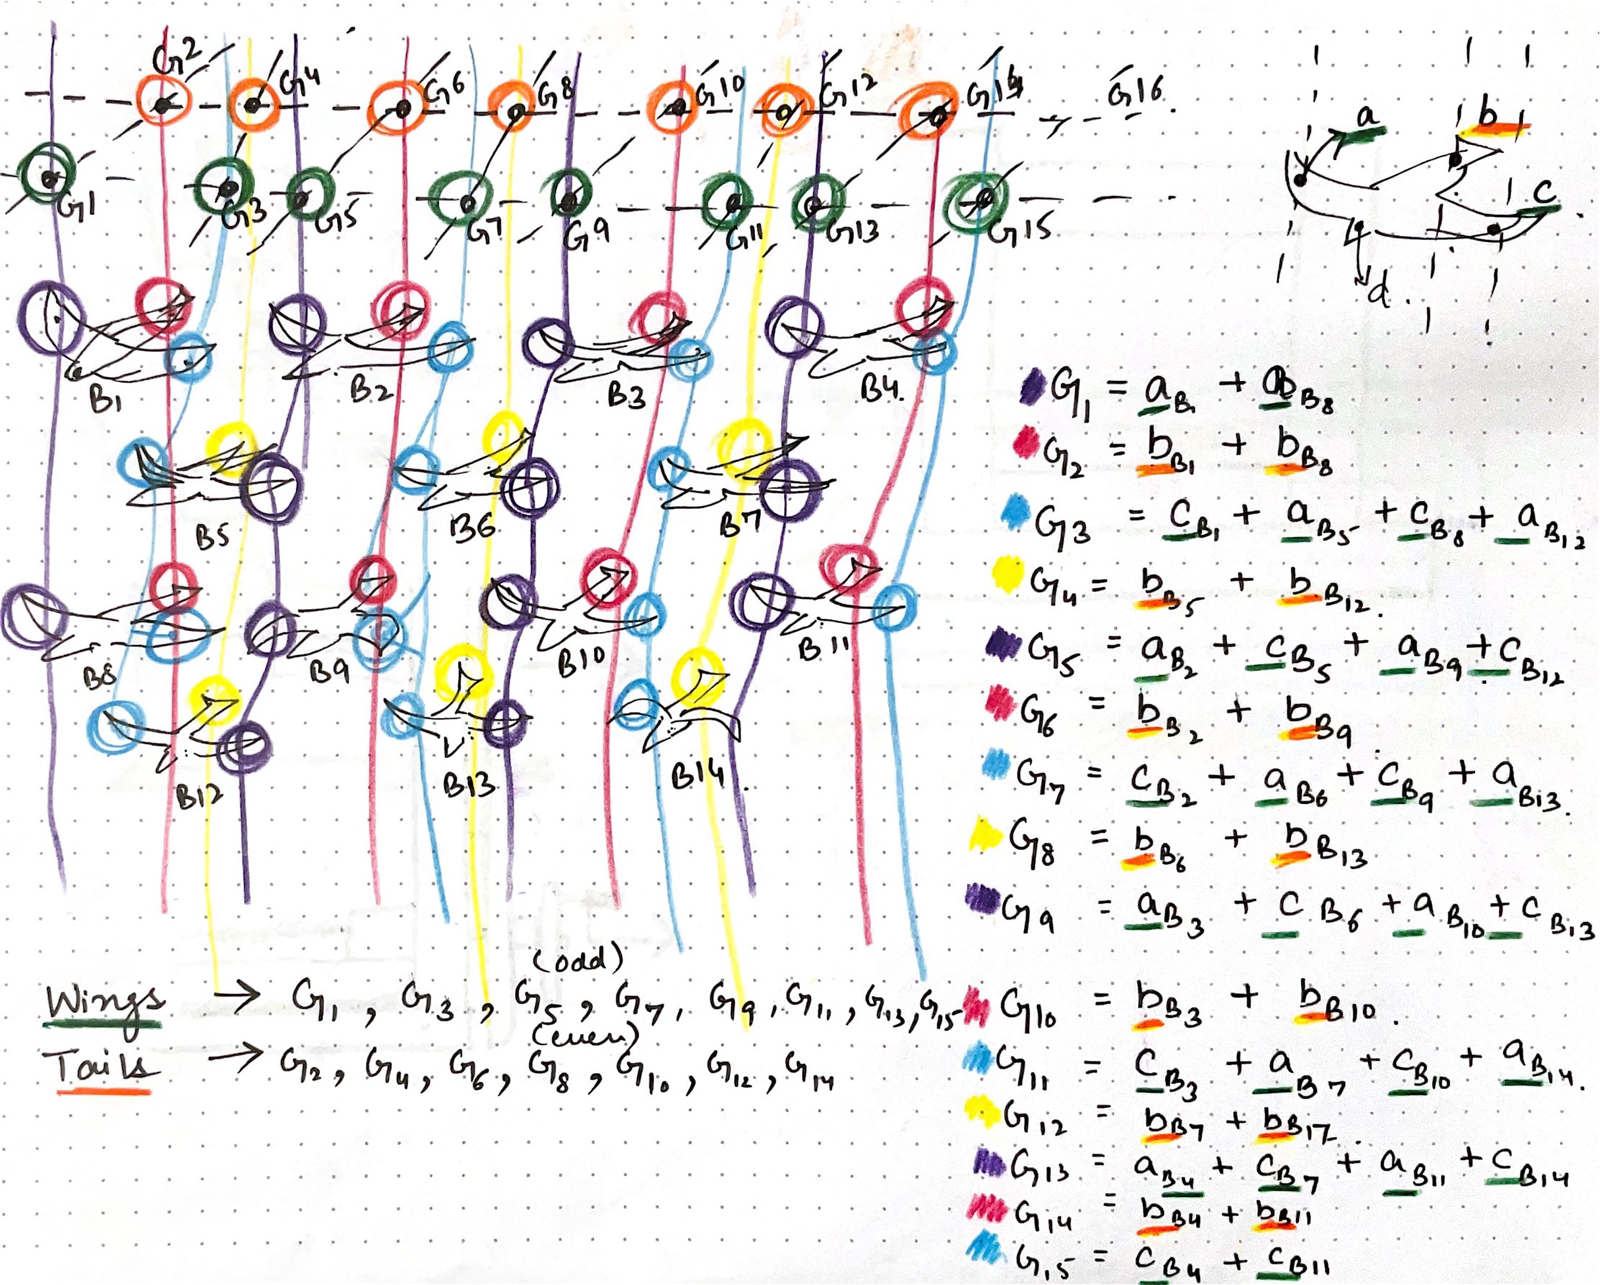 G2 G4 G6 G8 G10 G12 G14 G16.
G1 G3 G5 G7 G9 G11 G13 G15
a b
c
d.
B1 B2 B3 B4.
B5 B6 B7
B8 B9 B10 B11
B12 B13 B14.
G1 = aB1 + aB8
G2 = bB1 + bB8
G3 = cB1 + aB5 + cB8 + aB12
G4 = bB5 + bB12.
G5 = aB2 + cB5 + aB9 + cB12
G6 = bB2 + bB9.
G7 = cB2 + aB6 + cB9 + aB13.
G8 = bB6 + bB13
G9 = aB3 + cB6 + aB10 + cB13
G10 = bB3 + bB10.
G11 = cB3 + aB7 + cB10 + aB14.
G12 = bB7 + bB17.
G13 = aB4 + cB7 + aB11 + cB14
G14 = bB4 + bB11
G15 = cB4 + cB11
(odd)
Wings → G1, G3, G5, G7, G9, G11, G13, G15
(even)
Tails → G2, G4, G6, G8, G10, G12, G14